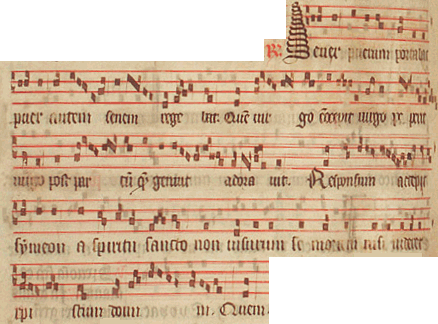 R. Senex puerum portabat
puer autem senem rege bat. Quē vir go cōcepit virgo pe perit
virgo post par tū q̄ genuit adora vit. Responsum accepit
symeon a spiritu sancto non visurum se mortem nisi videret
xpi stum domi ni. Quem